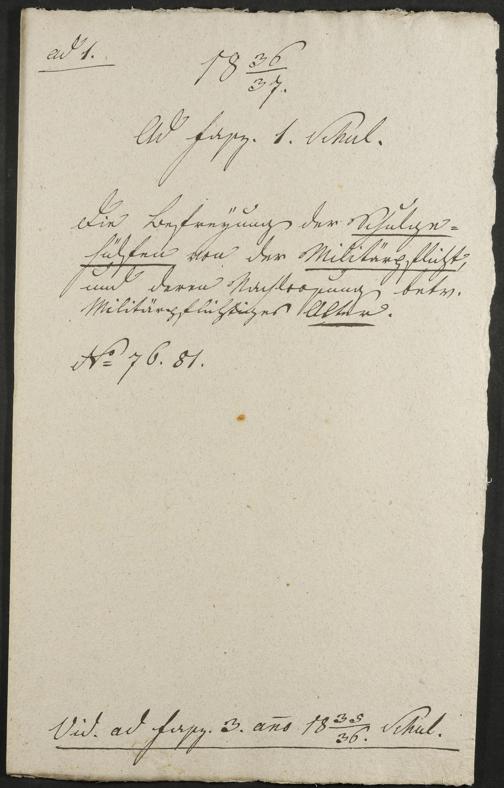 ad 1.
18 36/37.
Ad fasz. 1. Schul.
Die Befreyung der Schulge-
hülfen von der Militärpflicht,
und deren betr.
Militärpflichtiges Alter.
No 76. 81.
Vid. ad fasz. 3. ano 18 35/36. Schul.